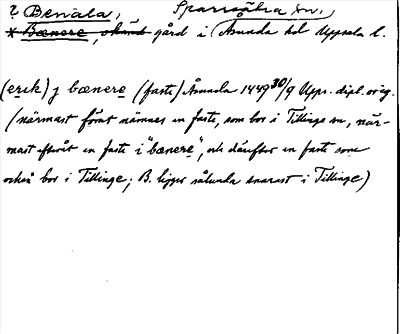 ? Benala, Sparrsätra sn.,
* Bænere, okänd gård i Åsunda hd Uppsala l.
(erik) j bænere (faste) Åsunda 1449 30/9 Upps. dipl. orig.
(närmast förut nämnes en faste, som bor i Tillinge sn, när-
mast efteråt en faste i "bænere", och därefter en faste som
också bor i Tillinge; B. ligger sålunda snarast i Tillinge)